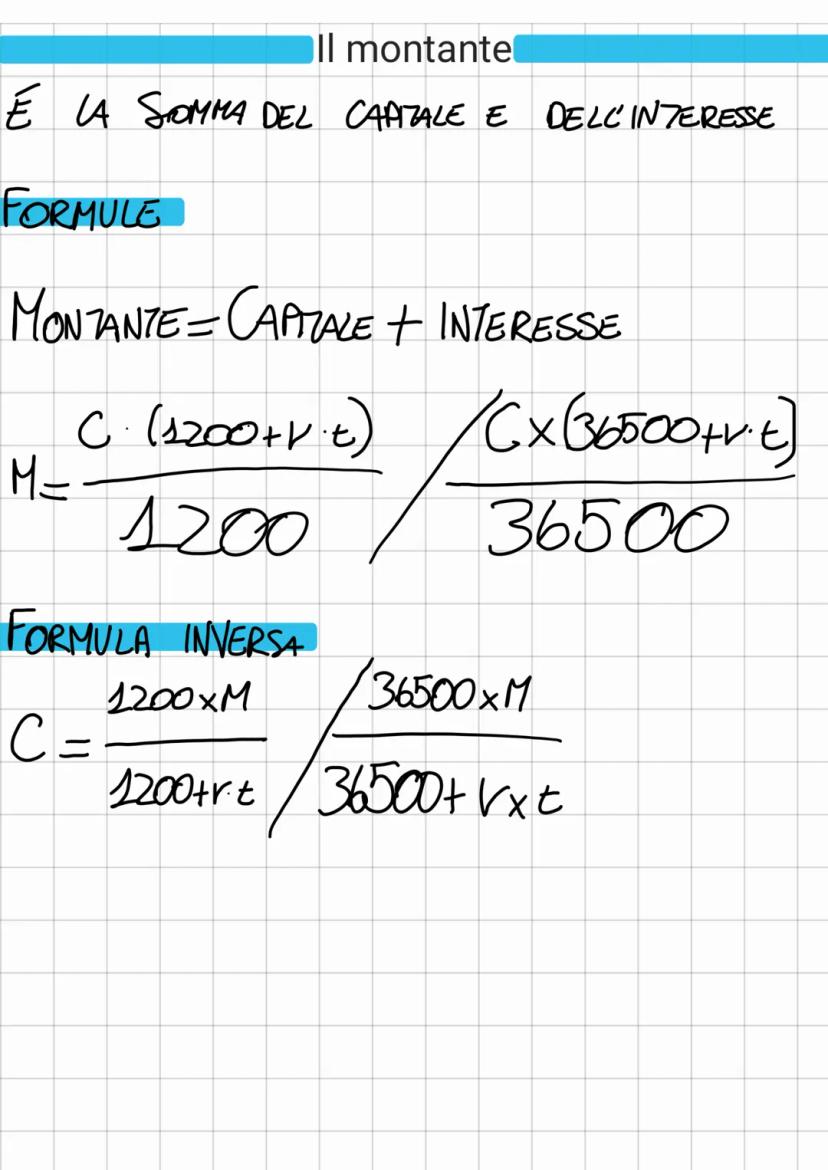 Il montante
È LA SOMMA DEL CAPITALE E DELL'INTERESSE
FORMULE
MONTANTE = CAPITALE + INTERESSE
M = C · (1200+r·t) / 1200 / C x (36500+r·t) / 36500
FORMULA INVERSA
C = 1200xM / 1200+r·t / 36500xM / 36500+rxt